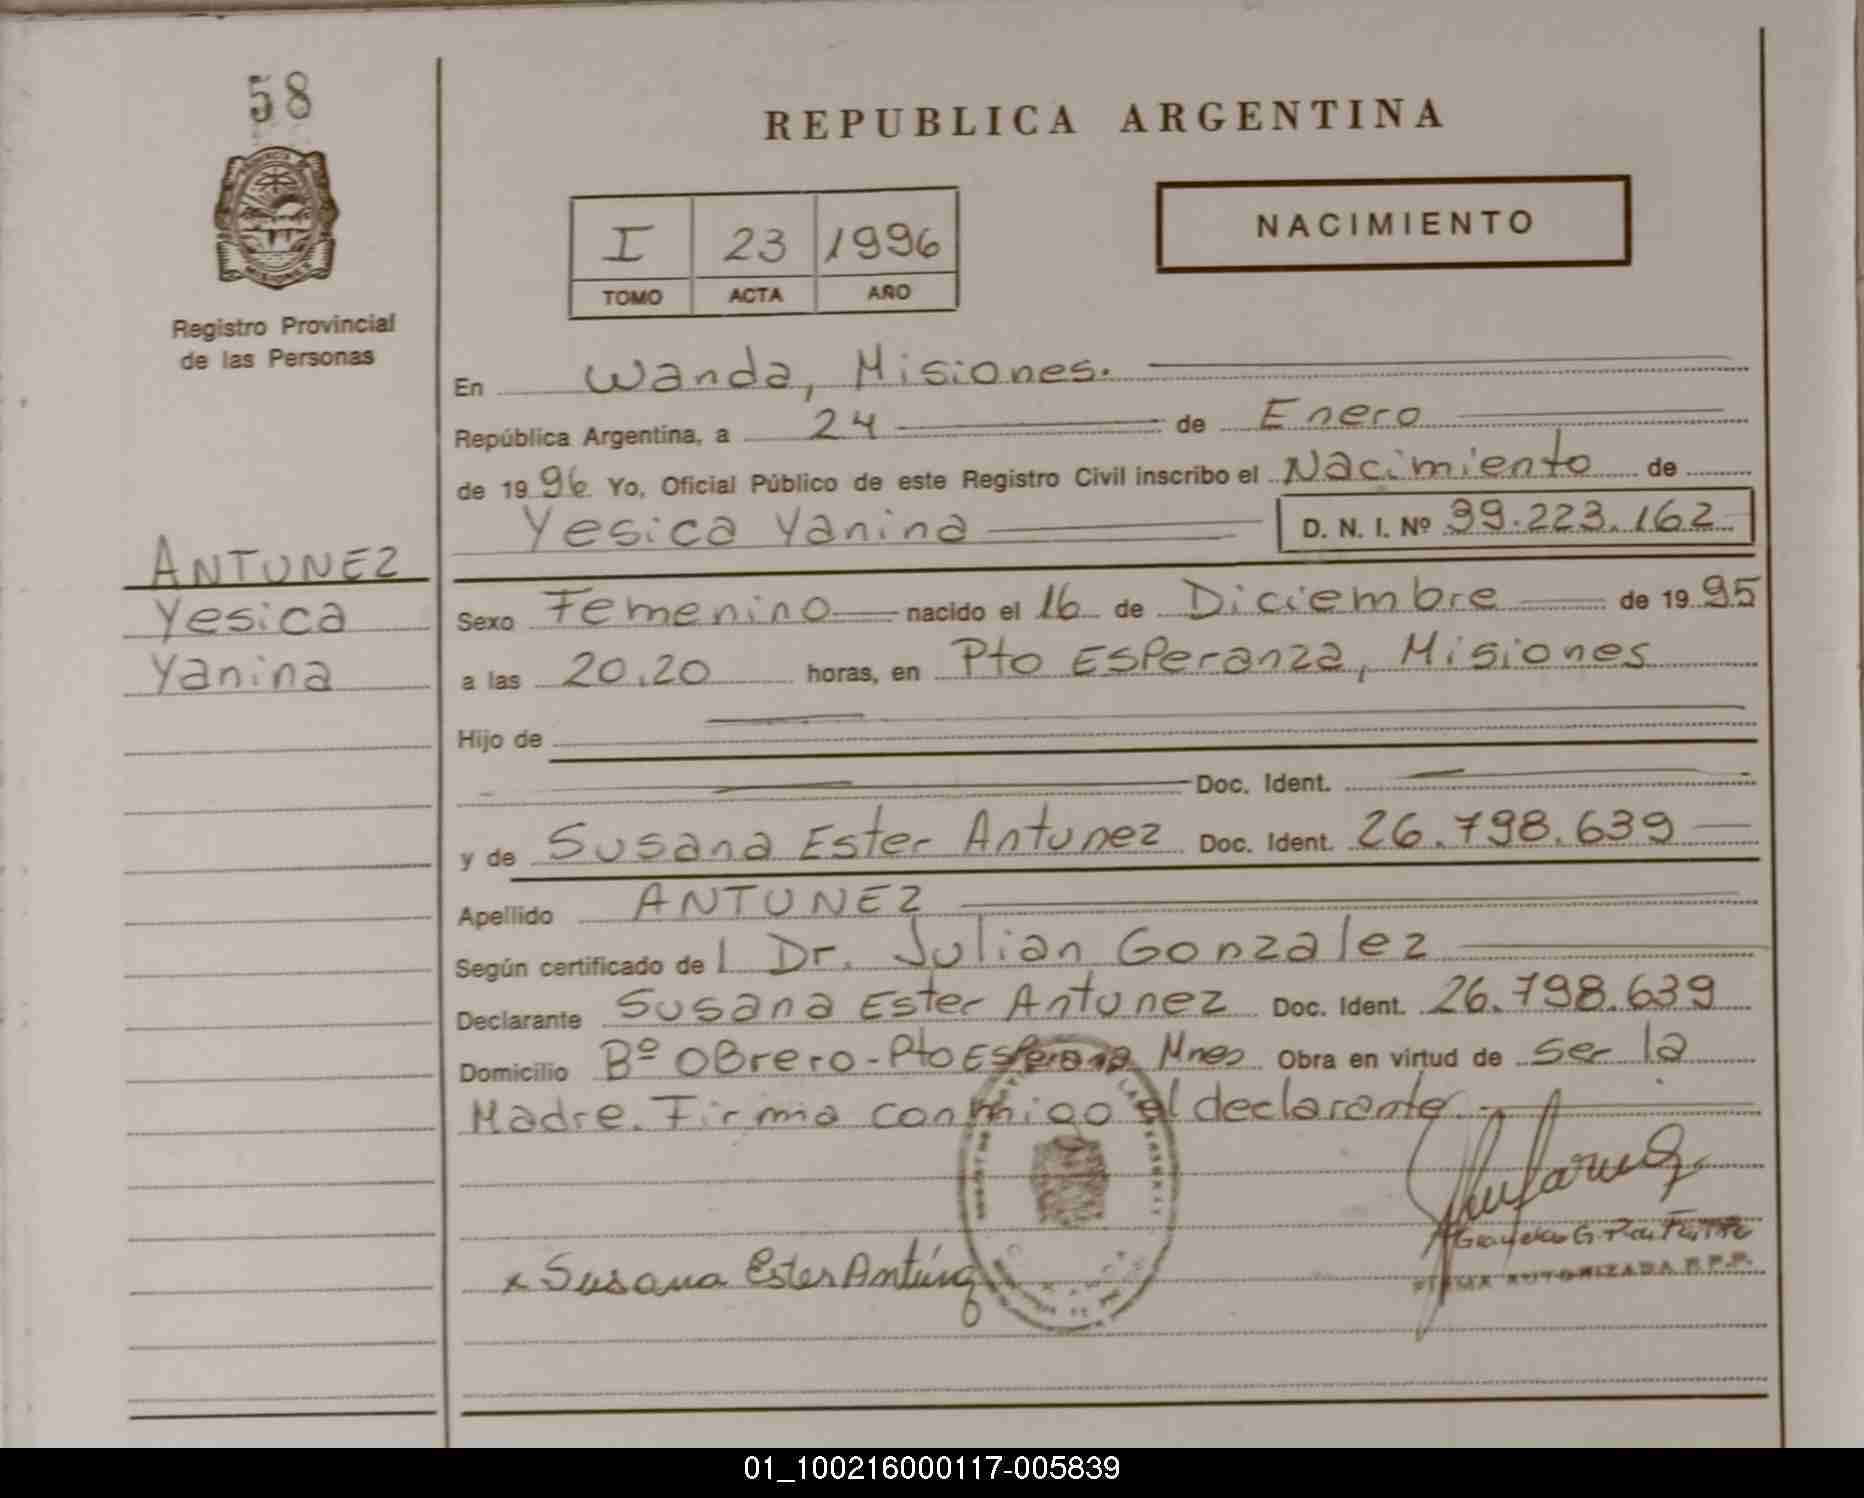 58
REPUBLICA ARGENTINA
NACIMIENTO
I 23 1996
TOMO ACTA AÑO
MISIONES
Registro Provincial
de las Personas
En Wanda, Misiones.
República Argentina, a 24 de Enero
de 1996 Yo, Oficial Público de este Registro Civil inscribo el Nacimiento de
Yesica Yanina D. N. I. Nº 39.223.162
ANTUNEZ
Yesica
Yanina
Sexo Femenino nacido el 16 de Diciembre de 1995
a las 20.20 horas, en Pto Esperanza, Misiones
Hijo de
Doc. Ident.
y de Susana Ester Antunez Doc. Ident. 26.798.639
Apellido ANTUNEZ
Según certificado del Dr. Julian Gonzalez
Declarante Susana Ester Antunez Doc. Ident. 26.798.639
Domicilio Bº OBrero - Pto Esperanza Mnes Obra en virtud de ser la
Madre. Firma conmigo el declarante.
x Susana Ester Antúnez
FIRMA AUTORIZADA R.P.P.
01_100216000117-005839